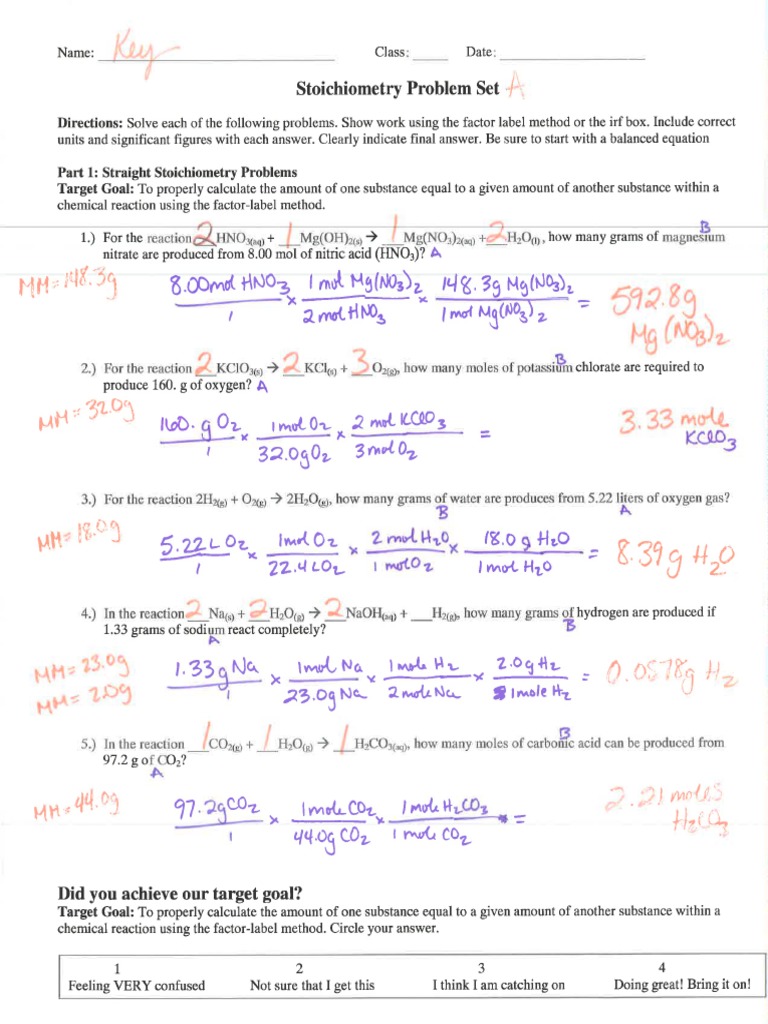 Name: Key Class: Date:
Stoichiometry Problem Set A
Directions: Solve each of the following problems. Show work using the factor label method or the irf box. Include correct
units and significant figures with each answer. Clearly indicate final answer. Be sure to start with a balanced equation
Part 1: Straight Stoichiometry Problems
Target Goal: To properly calculate the amount of one substance equal to a given amount of another substance within a
chemical reaction using the factor-label method.
B
1.) For the reaction 2 HNO3(aq) + 1 Mg(OH)2(s) → 1 Mg(NO3)2(aq) + 2 H2O(l), how many grams of magnesium
nitrate are produced from 8.00 mol of nitric acid (HNO3)? A
MM=148.3g
8.00mol HNO3 / 1 × 1 mol Mg(NO3)2 / 2 mol HNO3 × 148.3g Mg(NO3)2 / 1 mol Mg(NO3)2 = 592.8g
Mg(NO3)2
B
2.) For the reaction 2 KClO3(s) → 2 KCl(s) + 3 O2(g), how many moles of potassium chlorate are required to
produce 160. g of oxygen? A
MM=32.0g
160. g O2 / 1 × 1 mol O2 / 32.0g O2 × 2 mol KClO3 / 3 mol O2 = 3.33 mole
KClO3
3.) For the reaction 2H2(g) + O2(g) → 2H2O(g), how many grams of water are produces from 5.22 liters of oxygen gas?
B A
MM=18.0g
5.22 L O2 / 1 × 1mol O2 / 22.4 L O2 × 2 mol H2O / 1 mol O2 × 18.0 g H2O / 1 mol H2O = 8.39g H2O
4.) In the reaction 2 Na(s) + 2 H2O(g) → 2 NaOH(aq) + H2(g), how many grams of hydrogen are produced if
B
1.33 grams of sodium react completely?
A
MM=23.0g
MM=2.0g
1.33g Na / 1 × 1mol Na / 23.0g Na × 1 mole H2 / 2 mole Na × 2.0g H2 / 1 mole H2 = 0.0578g H2
B
5.) In the reaction 1 CO2(g) + 1 H2O(g) → 1 H2CO3(aq), how many moles of carbonic acid can be produced from
97.2 g of CO2?
A
MM=44.0g
97.2g CO2 / 1 × 1 mole CO2 / 44.0g CO2 × 1 mole H2CO3 / 1 mole CO2 = 2.21 moles
H2CO3
Did you achieve our target goal?
Target Goal: To properly calculate the amount of one substance equal to a given amount of another substance within a
chemical reaction using the factor-label method. Circle your answer.
1 2 3 4
Feeling VERY confused Not sure that I get this I think I am catching on Doing great! Bring it on!